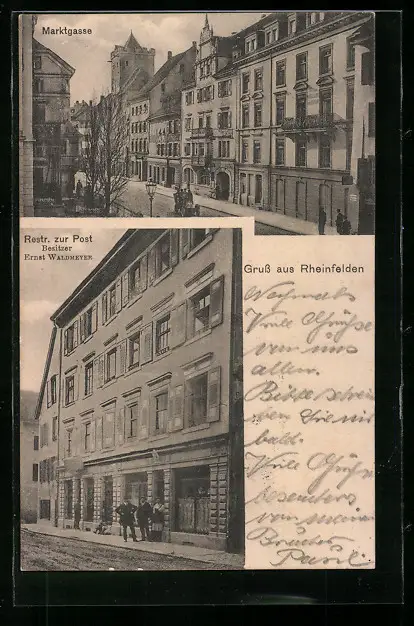 Marktgasse
Restr. zur Post
Besitzer
Ernst Waldmeyer
Gruß aus Rheinfelden
Nochmals
Viele Grüsse
von uns
allen.
Bitte schrei
ben Sie mir
bald.
Viele Grüsse
besonders
von meinem
Bruder
Paul